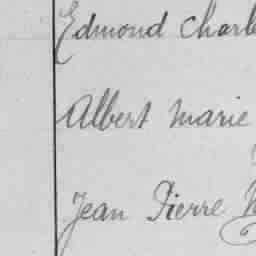 Edmond Charl
Albert Marie
Jean Pierre